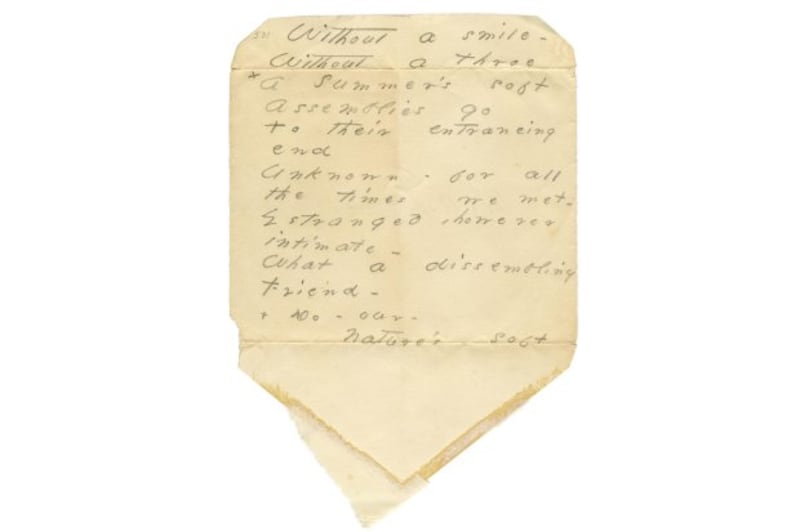 501
Without a smile -
Without a throe
+ A Summer's soft
Assemblies go
to their entrancing
end
Unknown - for all
the times we met -
Estranged, however
intimate -
What a dissembling
Friend -
+ Do - our -
Nature's soft